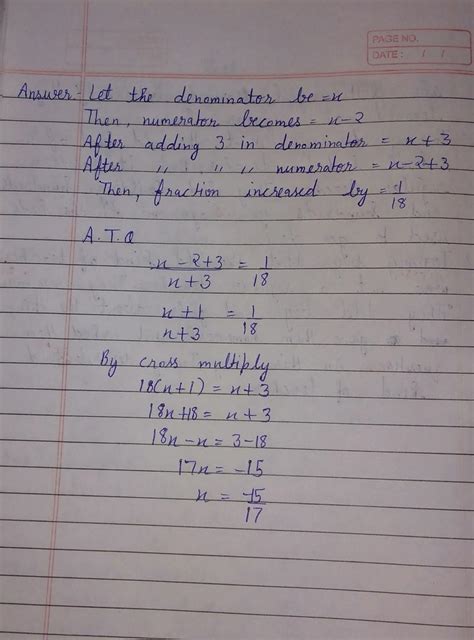 PAGE NO.
DATE: / /
Answer:- Let the denominator be = x
Then, numerator becomes = x-2
After adding 3 in denominator = x+3
After ,, ,, ,, numerator = x-2+3
Then, fraction increased by = 1/18
A.T.Q
x-2+3/x+3 = 1/18
x+1/x+3 = 1/18
By cross multiply
18(x+1) = x+3
18x+18 = x+3
18x-x = 3-18
17x = -15
x = -15/17